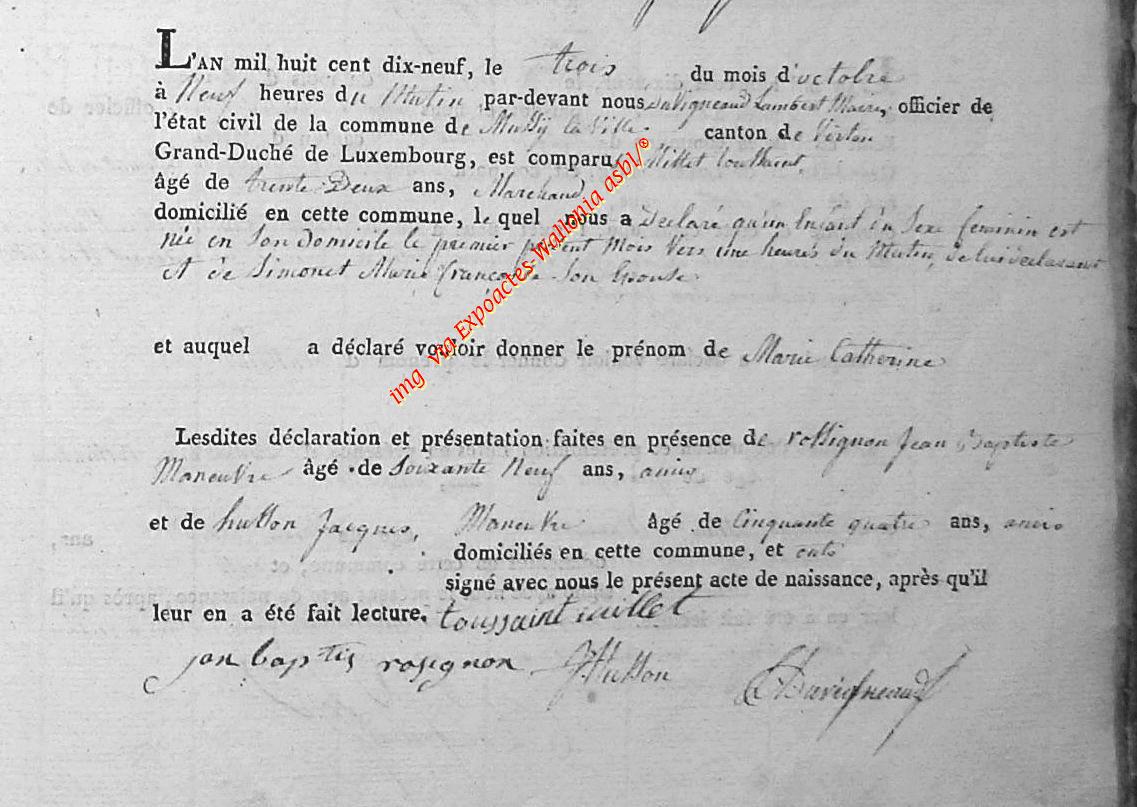 L'AN mil huit cent dix-neuf, le trois du mois d'octobre
à Neuf heures du Matin par-devant nous Duvigneaud Lambert Maire, officier de
l'état civil de la commune de Mussÿ la Ville canton de Virton
Grand-Duché de Luxembourg, est comparu Willet
âgé de trente Deux ans, Marchand
domicilié en cette commune, le quel nous a Declaré qu'un Enfant du Sexe feminin est
née en Son domicile le premier present Mois Vers une heures du Matin, de lui declarant
et de Simonet Marie françoise Son Epouse
et auquel a déclaré vouloir donner le prénom de Marie Catherine
Lesdites déclaration et présentation faites en présence de rossignon Jean Baptiste
Maneuvre âgé de Soixante Neuf ans, amis
et de husson Jacques, Maneuvre âgé de Cinquante quatre ans, amis
domiciliés en cette commune, et ont
signé avec nous le présent acte de naissance, après qu'il
leur en a été fait lecture. toussaint willet
jan baptis rosignon JHusson Duvigneaud
img via Expoactes-Wallonia asbl/®